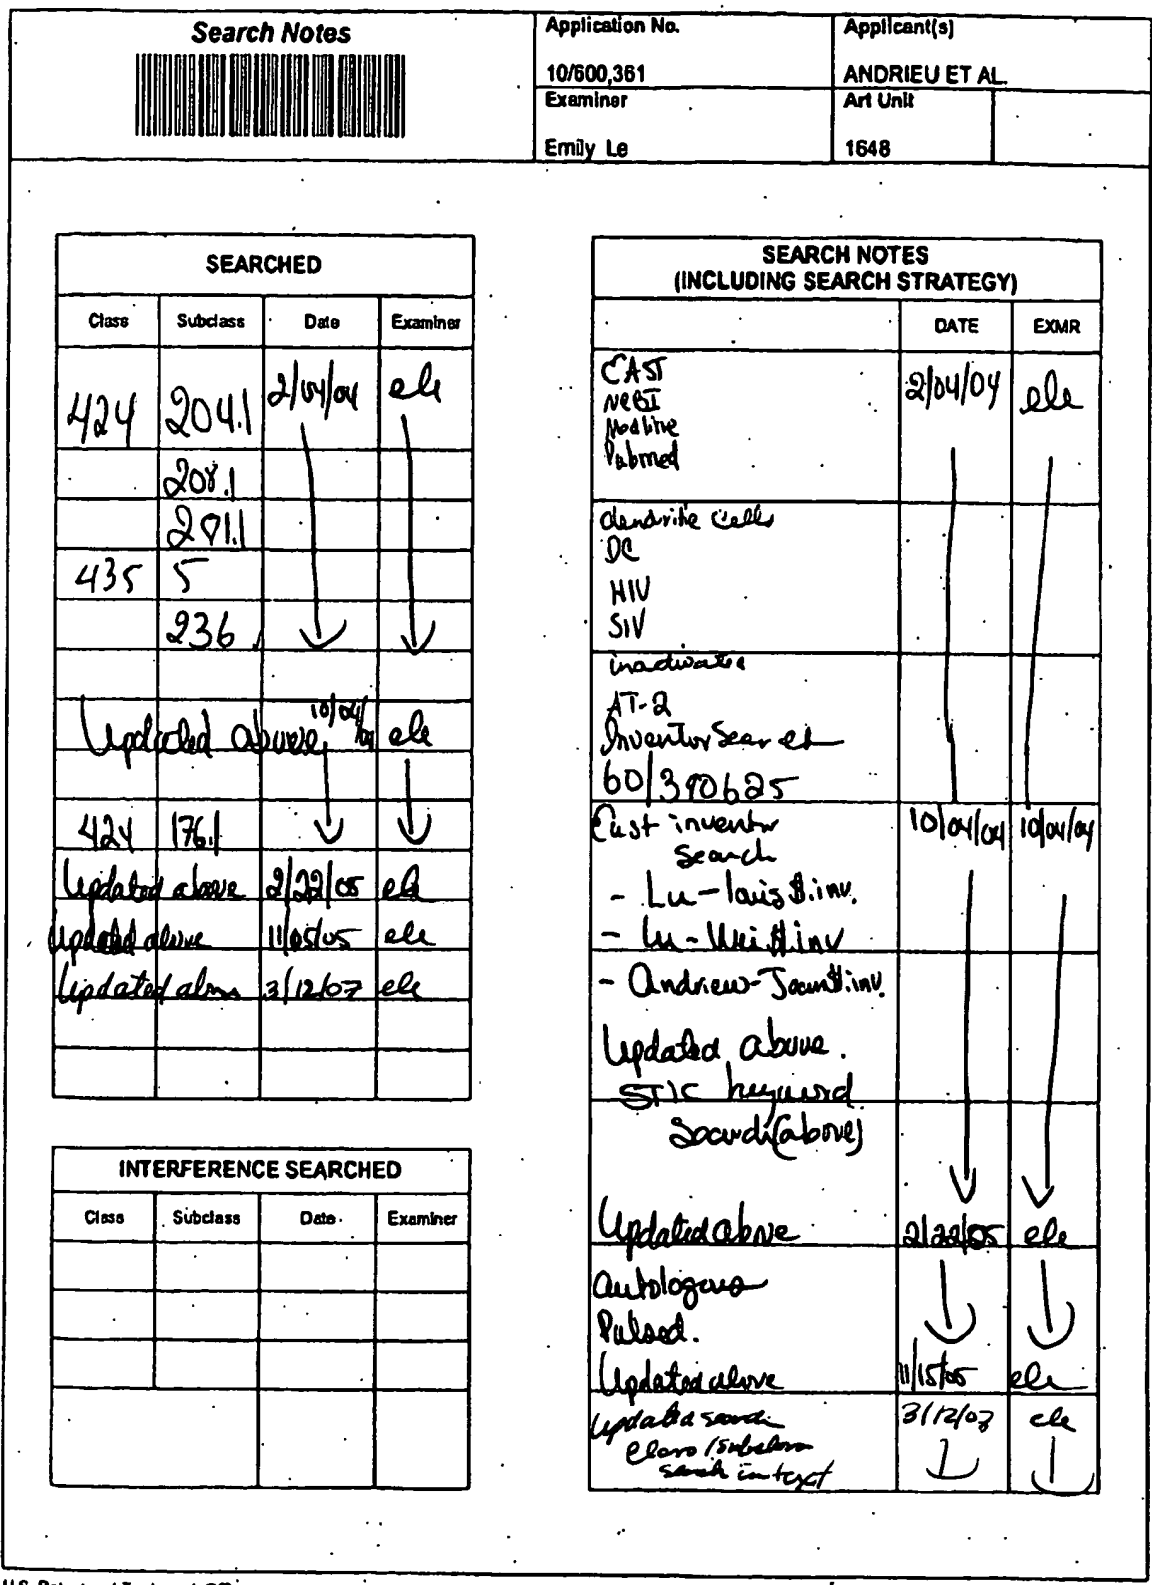 Search Notes
Application No.
10/600,361
Applicant(s)
ANDRIEU ET AL.
Examiner
Emily Le
Art Unit
1648
SEARCHED
Class Subclass Date Examiner
424 204.1 2/04/04 ele
208.1
201.1
435 5
236
Updated above 10/04/04 ele
424 176.1
Updated above 2/22/05 ele
Updated above 11/05/05 ele
Updated above 3/12/07 ele
INTERFERENCE SEARCHED
Class Subclass Date Examiner
SEARCH NOTES
(INCLUDING SEARCH STRATEGY)
DATE EXMR
EAST 2/04/04 ele
NCBI
Medline
Pubmed
dendrite cells
DC
HIV
SIV
inactivated
AT-2
Inventor Search
60/390625
East inventor 10/04/04 10/04/04
Search
- Lu-louis$.inv.
- Lu-Wei$.inv
- Andrieu-Jean$.inv.
Updated above.
STIC keyword
Search (above)
Updated above 2/22/05 ele
autologous
Pulsed.
Updated above 11/15/05 ele
updated search 3/12/07 ele
class/subclass
search in text